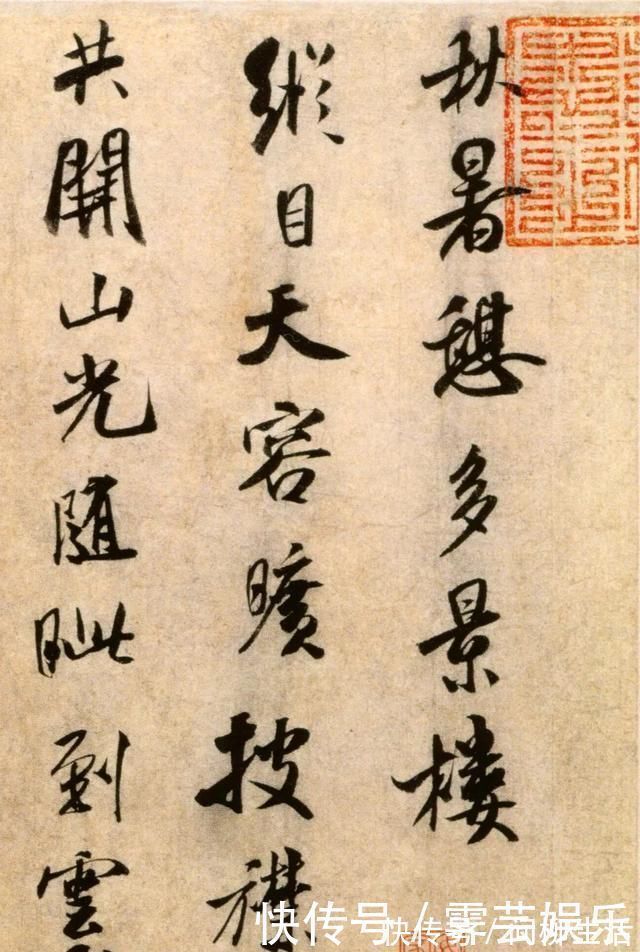 秋暑憩多景樓
縱目天容曠披襟
共開山光隨眦到雲
快传号 /
快传号 /